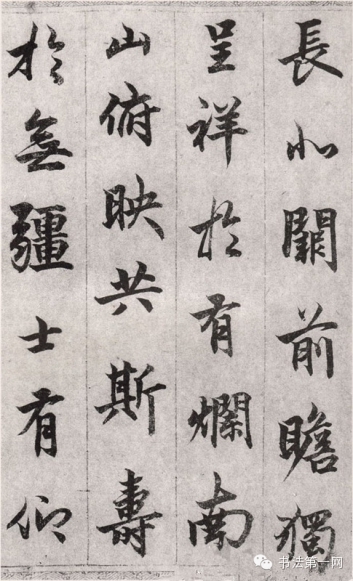 長北闕前瞻獨
呈祥於有爛南
山俯映共斯壽
於無疆士有仰
书法第一网